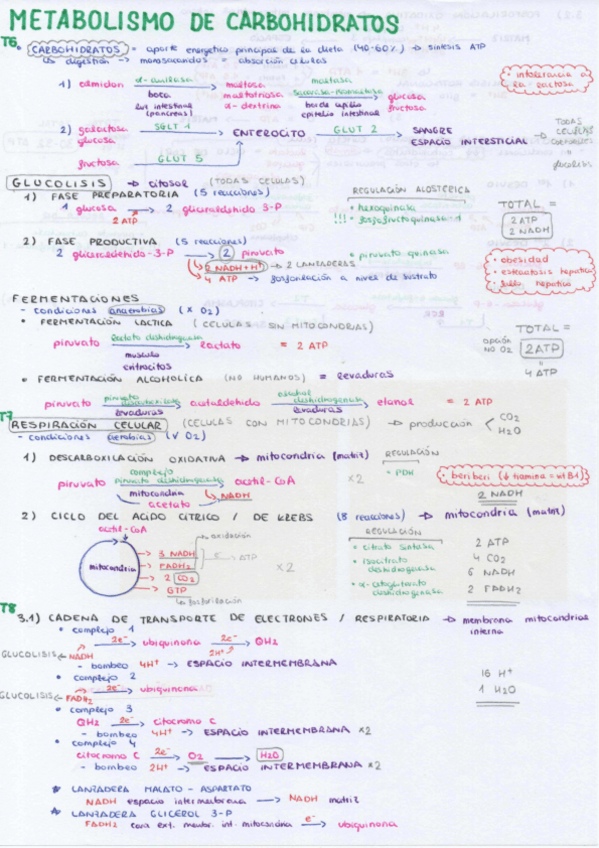 METABOLISMO DE CARBOHIDRATOS
T6
• CARBOHIDRATOS = aporte energetico principal de la dieta (40-60%) → sintesis ATP
↳ digestión → monosacaridos absorción células
1) almidon α-amilasa → maltosa maltasa →
boca maltotriosa sacarasa-isomaltasa → glucosa
luz intestinal (pancreas) α-dextrina borde cepillo epitelio intestinal fructosa
• intolerancia a la lactosa
2) galactosa SGLT 1 → ENTEROCITO GLUT 2 → SANGRE → TODAS CELULAS
glucosa ESPACIO INTERSTICIAL
fructosa GLUT 5
glucolisis
GLUCOLISIS → citosol (TODAS CELULAS)
1) FASE PREPARATORIA (5 reacciones) REGULACIÓN ALOSTERICA
1 glucosa → 2 gliceraldehido 3-P • hexoquinasa TOTAL =
2 ATP !!! • fosfofructoquinasa-1 2 ATP
2 NADH
2) FASE PRODUCTIVA (5 reacciones)
2 gliceraldehido-3-P → 2 piruvato • piruvato quinasa
2 NADH + H+ → 2 LANZADERAS
4 ATP → fosforilación a nivel de sustrato
• obesidad
• esteatosis hepatica
• fallo hepatico
FERMENTACIONES
- condiciones anaerobias (X O2)
• FERMENTACIÓN LACTICA (CELULAS SIN MITOCONDRIAS) TOTAL =
piruvato lactato deshidrogenasa → lactato = 2 ATP opción NO O2 2 ATP
musculo
eritrocitos 4 ATP
• FERMENTACIÓN ALCOHOLICA (NO HUMANOS) = levaduras
piruvato piruvato descarboxilasa → acetaldehido alcohol deshidrogenasa → etanol = 2 ATP
levaduras levaduras
T7
RESPIRACIÓN CELULAR (CELULAS CON MITOCONDRIAS) → producción < CO2
H2O
- condiciones aerobias (V O2)
1) DESCARBOXILACIÓN OXIDATIVA → mitocondria (matriz) REGULACIÓN
complejo
piruvato piruvato deshidrogenasa → acetil-CoA ×2 • PDH
• beriberi (↓ tiamina = vit B1)
mitocondria ↳ NADH
acetato 2 NADH
2) CICLO DEL ACIDO CITRICO / DE KREBS (8 reacciones) → mitocondria (matriz)
acetil-CoA → oxidación REGULACIÓN
mitocondria → 3 NADH • citrato sintasa 2 ATP
→ FADH2 ATP • isocitrato deshidrogenasa 4 CO2
→ 2 CO2 ×2 6 NADH
→ GTP • α-cetoglutarato deshidrogenasa 2 FADH2
↳ fosforilación
T8
3.1) CADENA DE TRANSPORTE DE ELECTRONES / RESPIRATORIA → membrana mitocondrias interna
• complejo 1
GLUCOLISIS ← NADH 2e- → ubiquinona 2e- → QH2
2H+
- bombeo 4H+ → ESPACIO INTERMEMBRANA
• complejo 2
GLUCOLISIS ← FADH2 2e- → ubiquinona
16 H+
1 H2O
• complejo 3
QH2 2e- → citocromo C
- bombeo 4H+ → ESPACIO INTERMEMBRANA ×2
• complejo 4
citocromo C 2e- → O2 → H2O
- bombeo 2H+ → ESPACIO INTERMEMBRANA ×2
LANZADERA MALATO - ASPARTATO
NADH espacio intermembrana → NADH matriz
LANZADERA GLICEROL 3-P
FADH2 cara ext. membr. int. mitocondria e- → ubiquinona